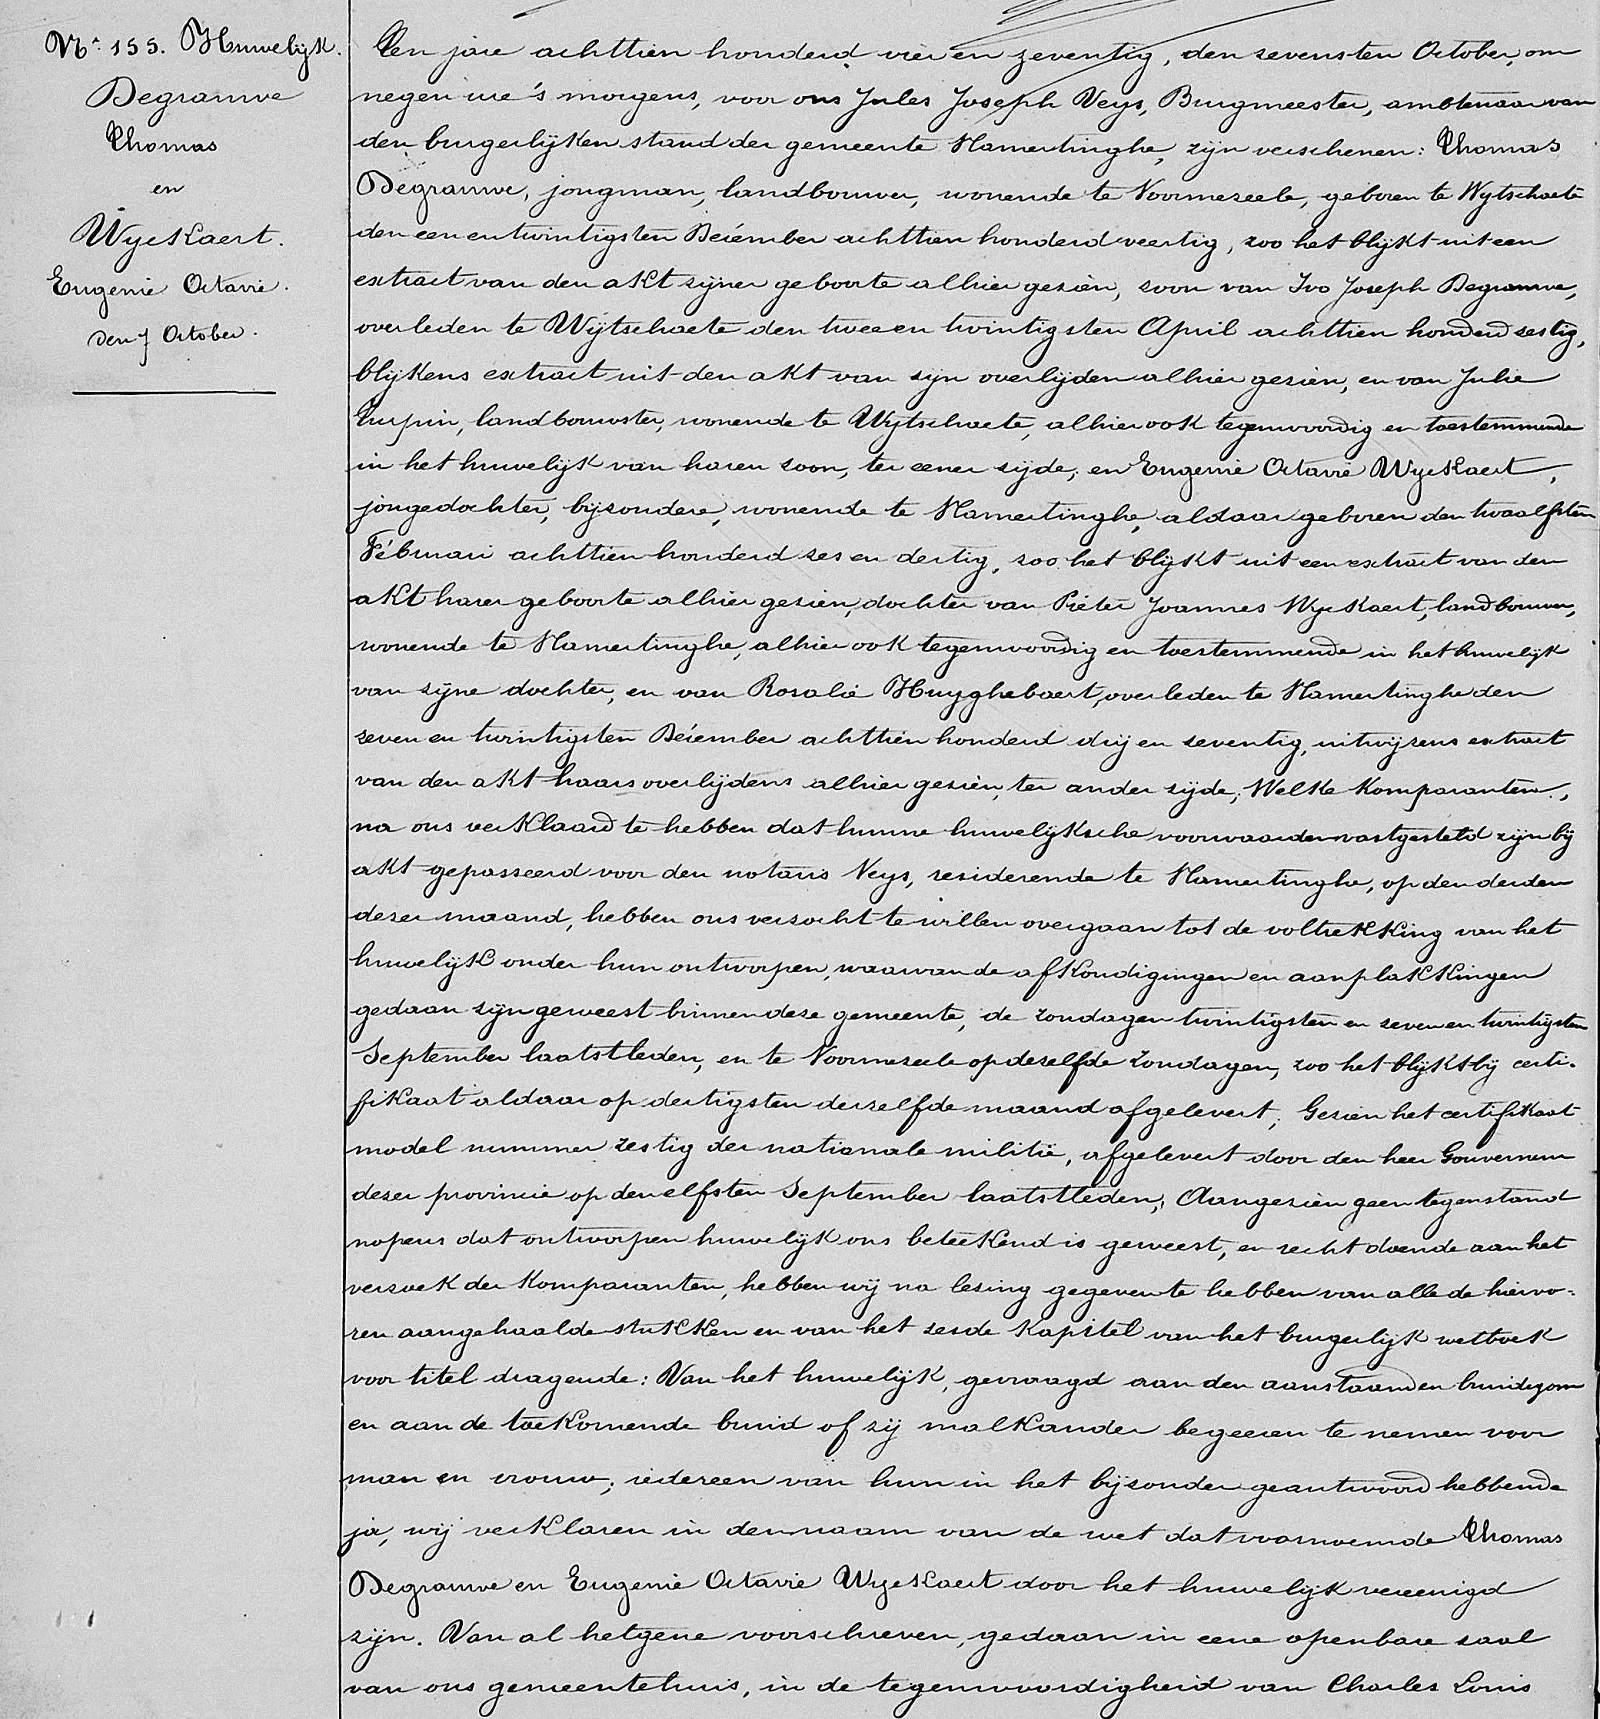 Nr. 155. Huwelijk.
Degrauwe
Thomas
en
Wyckaert.
Eugenie Octavie.
den 7 October.
Ten jare achttien honderd vier en zeventig, den sevensten October, om
negen ure 's morgens, voor ons Jules Joseph Veys, Burgmeester, ambtenaar van
den burgerlijken stand der gemeente Vlamertinghe, zijn verschenen: Thomas
Degrauwe, jongman, landbouwer, wonende te Voormezeele, geboren te Wytschaete
den een en twintigsten December achttien honderd veertig, zoo het blijkt uit een
extract van den akt zijner geboorte alhier gezien, zoon van Ivo Joseph Degrauwe,
overleden te Wijtschaete den twee en twintigsten April achttien honderd zestig,
blijkens extract uit den akt van zijn overlijden alhier gezien, en van Julie
Turpin, landbouwster, wonende te Wytschaete, alhier ook tegenwoordig en toestemmende
in het huwelijk van haren zoon, ter eener zijde; en Eugenie Octavie Wyckaert,
jongedochter, bijzondere, wonende te Vlamertinghe, aldaar geboren den twaalfsten
Fébruari achttien honderd zes en dertig, zoo het blijkt uit een extract van den
akt harer geboorte alhier gezien, dochter van Pieter Joannes Wyckaert, landbouwer,
wonende te Vlamertinghe, alhier ook tegenwoordig en toestemmende in het huwelijk
van zijne dochter, en van Rosalie Huyghebaert, overleden te Vlamertinghe den
zeven en twintigsten December achttien honderd drij en zeventig, uitwijzens extract
van den akt haars overlijdens alhier gezien, ter ander zijde; Welke Komparanten,
na ons verklaard te hebben dat hunne huwelijksche voorwaarden vastgesteld zijn bij
akt gepasseerd voor den notaris Veys, residerende te Vlamertinghe, op den derden
dezer maand, hebben ons verzocht te willen overgaan tot de voltrekking van het
huwelijk onder hun ontworpen, waarvan de afkondigingen en aanplakkingen
gedaan zijn geweest binnen deze gemeente, de zondagen twintigsten en zeven en twintigsten
September laatstleden, en te Voormezeele op dezelfde zondagen, zoo het blijkt bij certi-
fikaat aldaar op dertigsten derzelfde maand afgelevert; Gezien het certifikaat
model nummer zestig der nationale militie, afgelevert door den heer Gouverneur
dezer provincie op den elfsten September laatstleden; Aangezien geen tegenstand
nopens dat ontworpen huwelijk ons beteekend is geweest, en recht doende aan het
verzoek der Komparanten, hebben wij na lezing gegeven te hebben van alle de hiervo-
ren aangehaalde stukken en van het zesde kapitel van het burgerlijk wetboek
voor titel dragende: Van het huwelijk, gevraagd aan den aanstaanden bruidegom
en aan de toekomende bruid of zij malkander begeeren te nemen voor
man en vrouw; iedereen van hun in het bijzonder geantwoord hebbende
ja, wij verklaren in den naam van de wet dat voornoemde Thomas
Degrauwe en Eugenie Octavie Wyckaert door het huwelijk vereenigd
zijn. Van al hetgene voorschreven, gedaan in eene openbare zaal
van ons gemeentehuis, in de tegenwoordigheid van Charles Louis